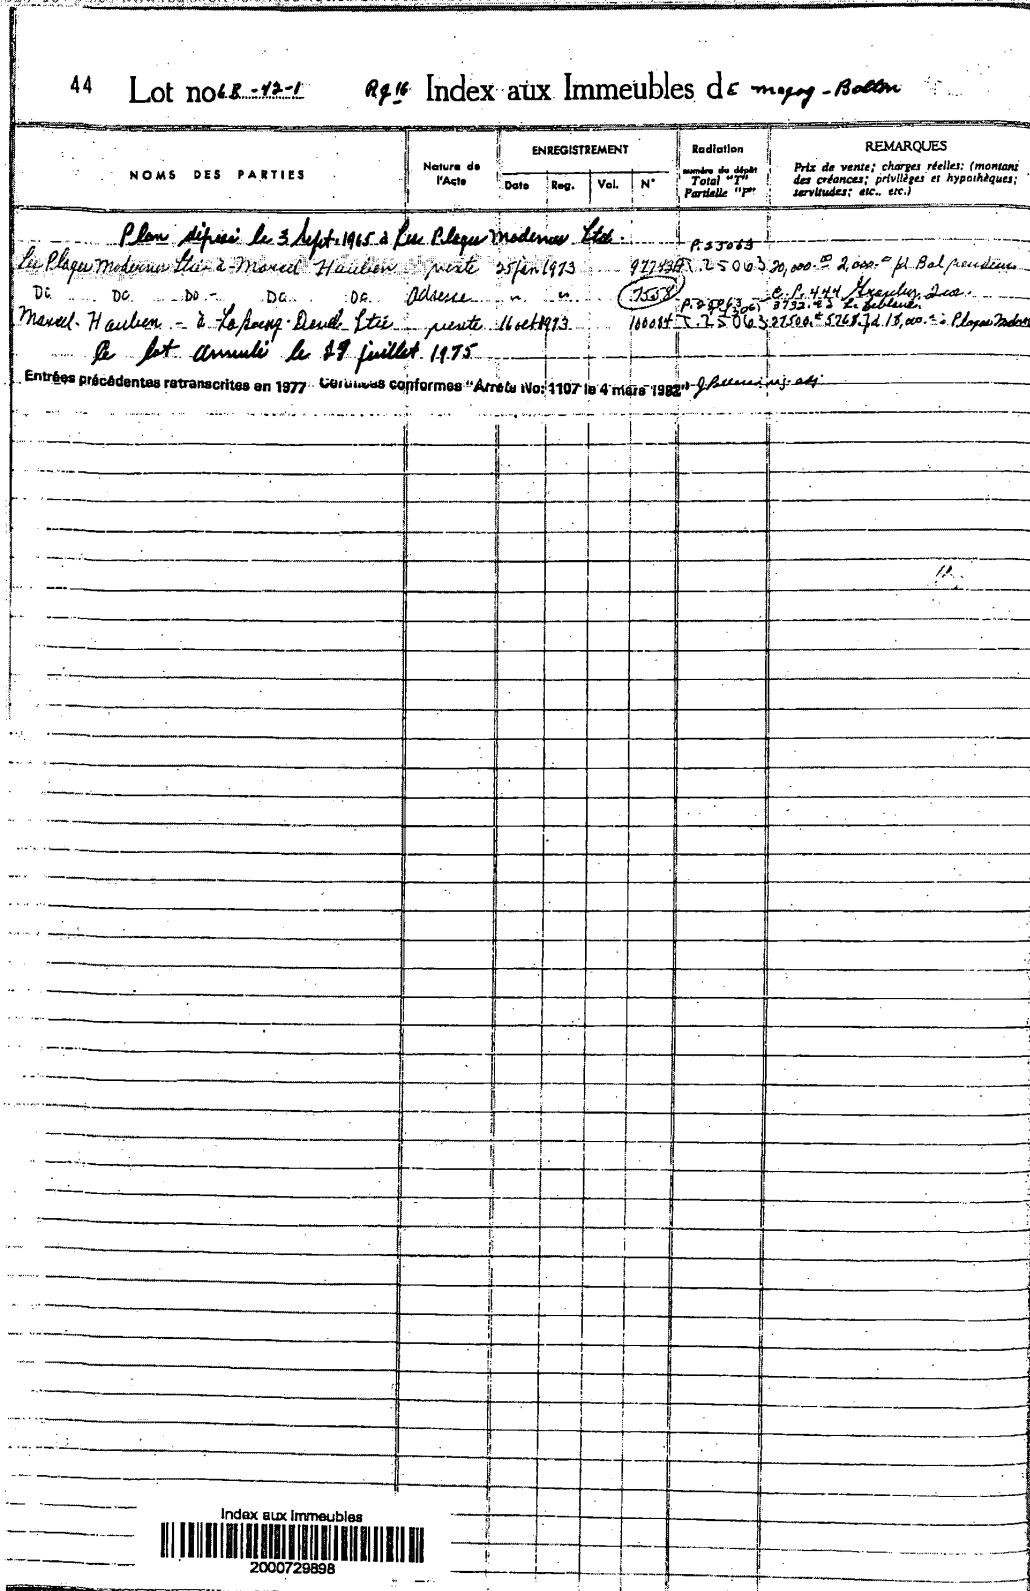 44 Lot no 6B-42-1 Rg 16 Index aux Immeubles de Magog-Bolton
NOMS DES PARTIES
Nature de l'Acte
ENREGISTREMENT
Date Reg. Vol. N°
Radiation
numéro du dépôt
Total "T"
Partielle "P"
REMARQUES
Prix de vente; charges réelles: (montant
des créances; privilèges et hypothèques;
servitudes; etc., etc.)
Plan déposé le 3 Sept. 1965 à Les Plages Modernes Ltd.
P. 25063
Les Plages Modernes Ltée à Marcel Haubien vente 25 jan 1973 97743 T. 25063 20,000.00 2,000.00 pl Bal
Do Do Do Do Do Adresse " " 7558 C.P. 444 Granby, Que.
P. 25063 3732.43 L. Leblanc
Marcel Haubien à David Ltée vente 16 oct 1973 100084 T. 25063 27500.00 5268.7 d. 18,000.00 à Plages
Ce lot annulé le 29 juillet 1975
Entrées précédentes retranscrites en 1977 Certifiées conformes "Arrêté No: 1107 le 4 mars 1982"
Index aux Immeubles
2000729898